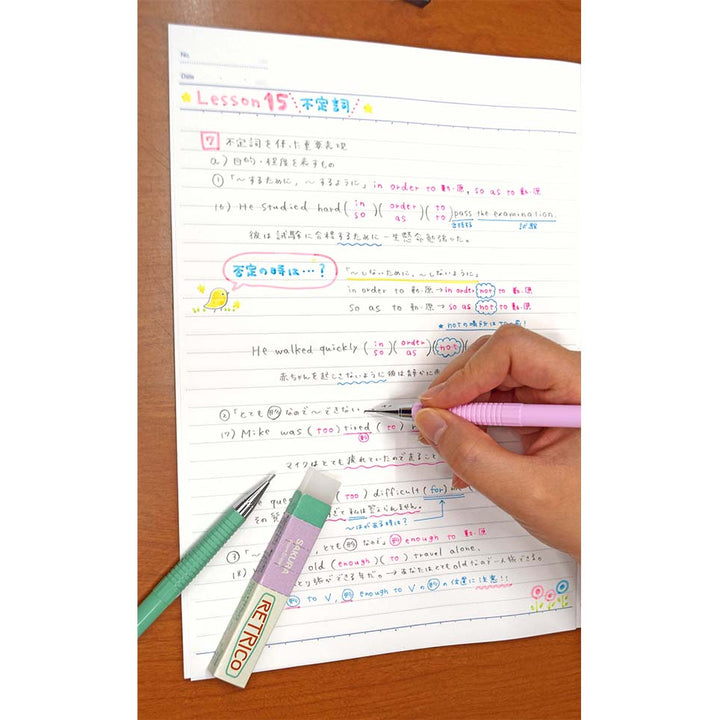 No.
Date
Lesson 15 不定詞
7 不定詞を使った重要表現
a) 目的・程度を表すもの
① 「〜するために、〜するように」 in order to 動・原, so as to 動・原
16) He studied hard (in so)(order as)(to to) pass the examination.
合格する 試験
彼は試験に合格するために一生懸命勉強した。
否定の時は…?
「〜しないために、〜しないように」
in order to 動・原 → in order not to 動・原
so as to 動・原 → so as not to 動・原
★ notの場所はtoの前!
He walked quickly (in so)(order as)(not)(
赤ちゃんを起こさないように彼は静かに
② 「とても 形 なので〜できない
17) Mike was (too) tired (to)
形
マイクはとても疲れていたので走ること
(too) difficult (for)
私は答えられません。
〜はがある時は?
③ 「〜 、とても 形 なの」 形 enough to 動・原
18) old (enough)(to) travel alone.
旅ができる年だ。→ あなたはとてもoldなので一人旅できる。
形 to V, 形 enough to Vの形の位置に注意!!
SAKURA
RETRICO